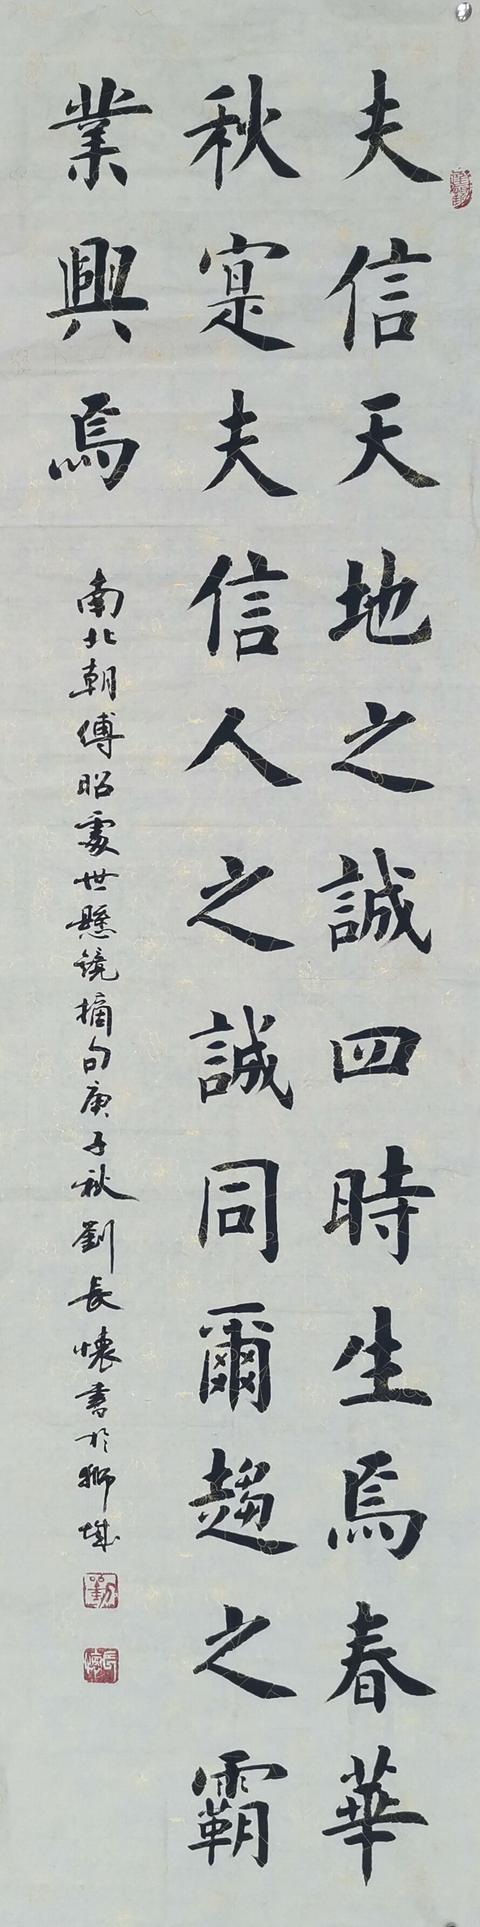 夫信天地之誠四時生焉春華
秋寔夫信人之誠同爾趨之霸
業興焉
南北朝傅昭處世懸鏡摘句庚子秋劉長懷書於獅城